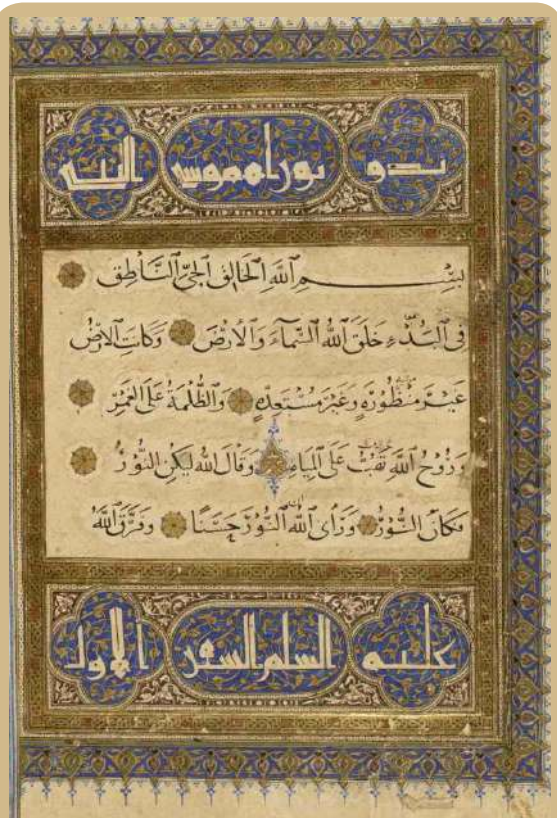 بدو توراه موسى النبي
بِسْمِ اللَّهِ الْخَالِقِ الْحَيِّ النَّاطِقِ
فِي الْبَدْءِ خَلَقَ اللَّهُ السَّمَاءَ وَالْأَرْضَ وَكَانَتِ الْأَرْضُ
غَيْرَ مَنْظُورَةٍ وَغَيْرَ مُسْتَعِدَّةٍ وَالظُّلْمَةُ عَلَى الْغَمْرِ
وَرُوحُ اللَّهِ تَهُبُّ عَلَى الْمِيَاهِ وَقَالَ اللَّهُ لِيَكُنِ النُّورُ
فَكَانَ النُّورُ وَرَأَى اللَّهُ النُّورَ حَسَنًا وَفَرَّقَ اللَّهُ
عليه السلم السفر الاول